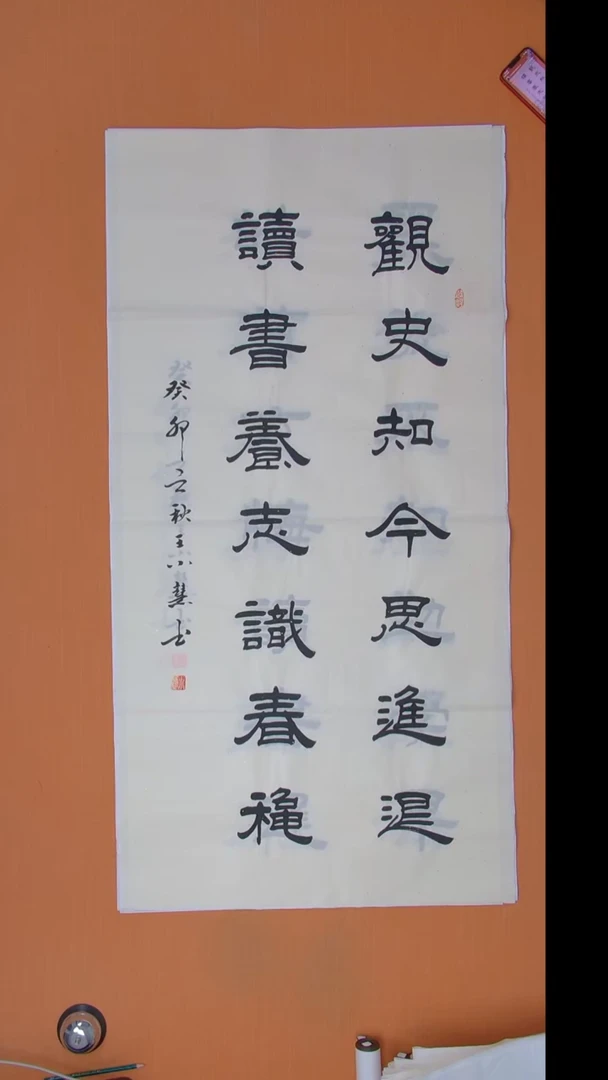 觀史知今思進退
讀書養志識春穐
癸卯立秋王小慧书